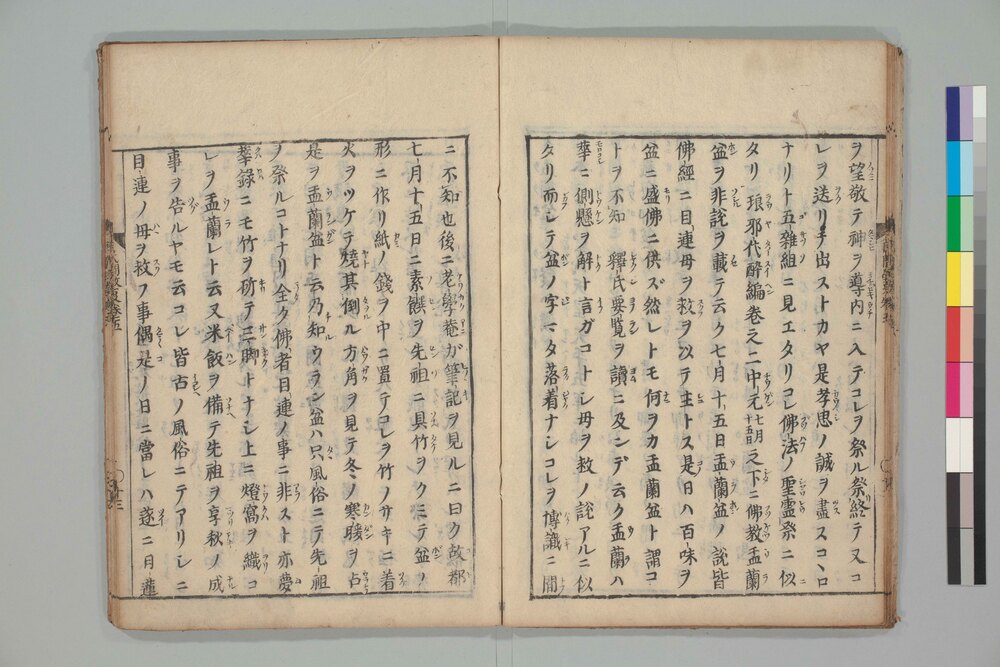 ヲ望敬テ神ヲ導内ニ入テコレヲ祭ル祭終テ又コ
レヲ送リ手出ストカヤ是孝忠ノ誠ヲ盡スコヽロ
ナリト五雜組ニ見エタリコレ佛法ノ聖靈祭ニ似
タリ琅邪代醉編卷之二中元七月十五日之下ニ佛教盂蘭
盆ヲ非説ヲ載テ云ク七月十五日盂蘭盆ノ説皆
佛經ニ目連母ヲ救ヲ以テ主トス是日ハ百味ヲ
盆ニ盛佛ニ供ズ然レトモ何ヲカ盂蘭盆ト謂コ
トヲ不知釋氏要覧ヲ讀ニ及ンデ云ク盂蘭ハ
華ニ倒懸ヲ解ト言ガコトシ母ヲ救ノ説アルニ似
タリ而シテ盆ノ字マタ落着ナシコレヲ博識ニ問
ニ不知也後ニ老學菴ガ筆記ヲ見ルニ曰ク故都
七月十五日ニ素饌ヲ先祖ニ具竹ヲクミテ盆ノ
形ニ作リ紙ノ錢ヲ中ニ置テコレヲ竹ノサキニ着
火ヲツケテ燒其倒ル方角ヲ見テ冬ノ寒暖ヲ占
是ヲ盂蘭盆ト云乃知ウラン盆ハ只風俗ニテ先祖
ノ祭ルコトナリ全ク佛者目連ノ事ニ非スト亦夢
華錄ニモ竹ヲ斫テ三脚トナシ上ニ燈窩ヲ織コ
レヲ盂蘭レト云又米飯ヲ備テ先祖ヲ享秋ノ成
事ヲ告ルヤモ云コレ皆古ノ風俗ニテアリシニ
目連ノ母ヲ救フ事偶是ノ日ニ當レハ遂ニ目蓮